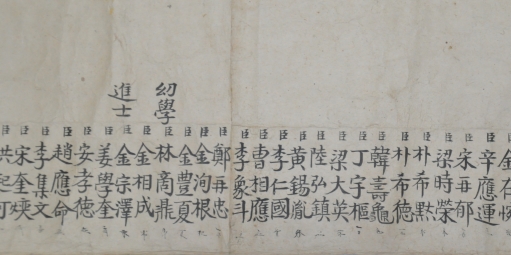 臣辛應運
臣宋再郁
臣梁時榮
臣朴希默
臣朴希德
臣韓壽龜
臣丁字樞
臣梁大英
臣陸弘鎮
臣黃錫胤
臣李仁國
臣曹相應
臣李象斗
臣鄭再忠
臣金洵根
臣金豊夏
幼學臣林商鼎
臣金相成
進士臣金宗澤
臣姜學奎
臣安孝德
臣趙應命
臣李集文
臣宋奎
臣洪起